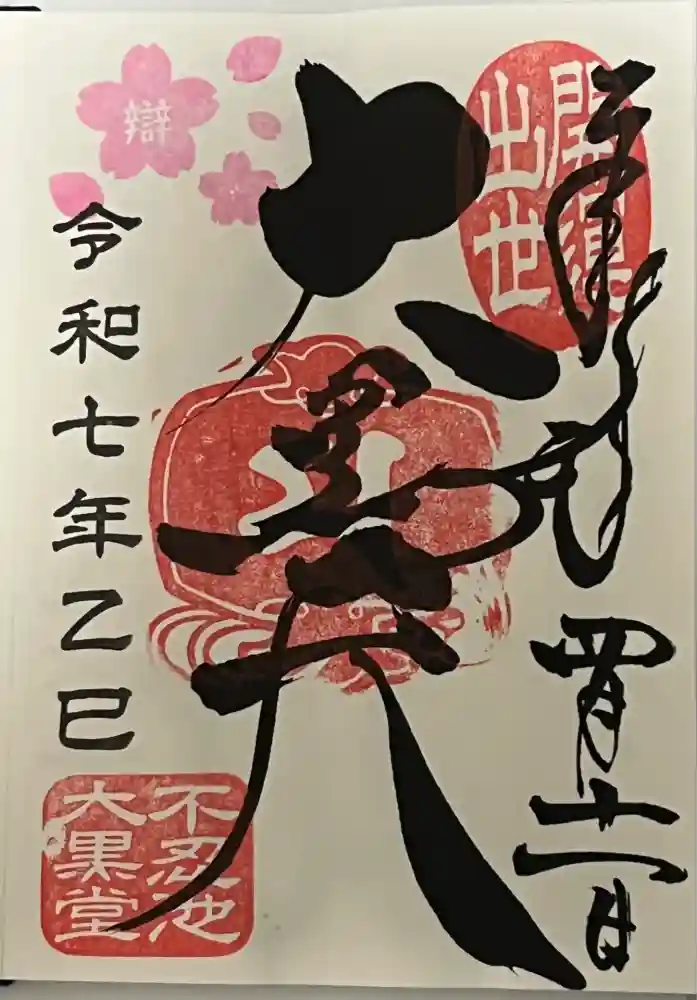 奉拝
四月
日
開運
出世
大黒天
辯
令和七年乙巳
不忍池
大黒堂